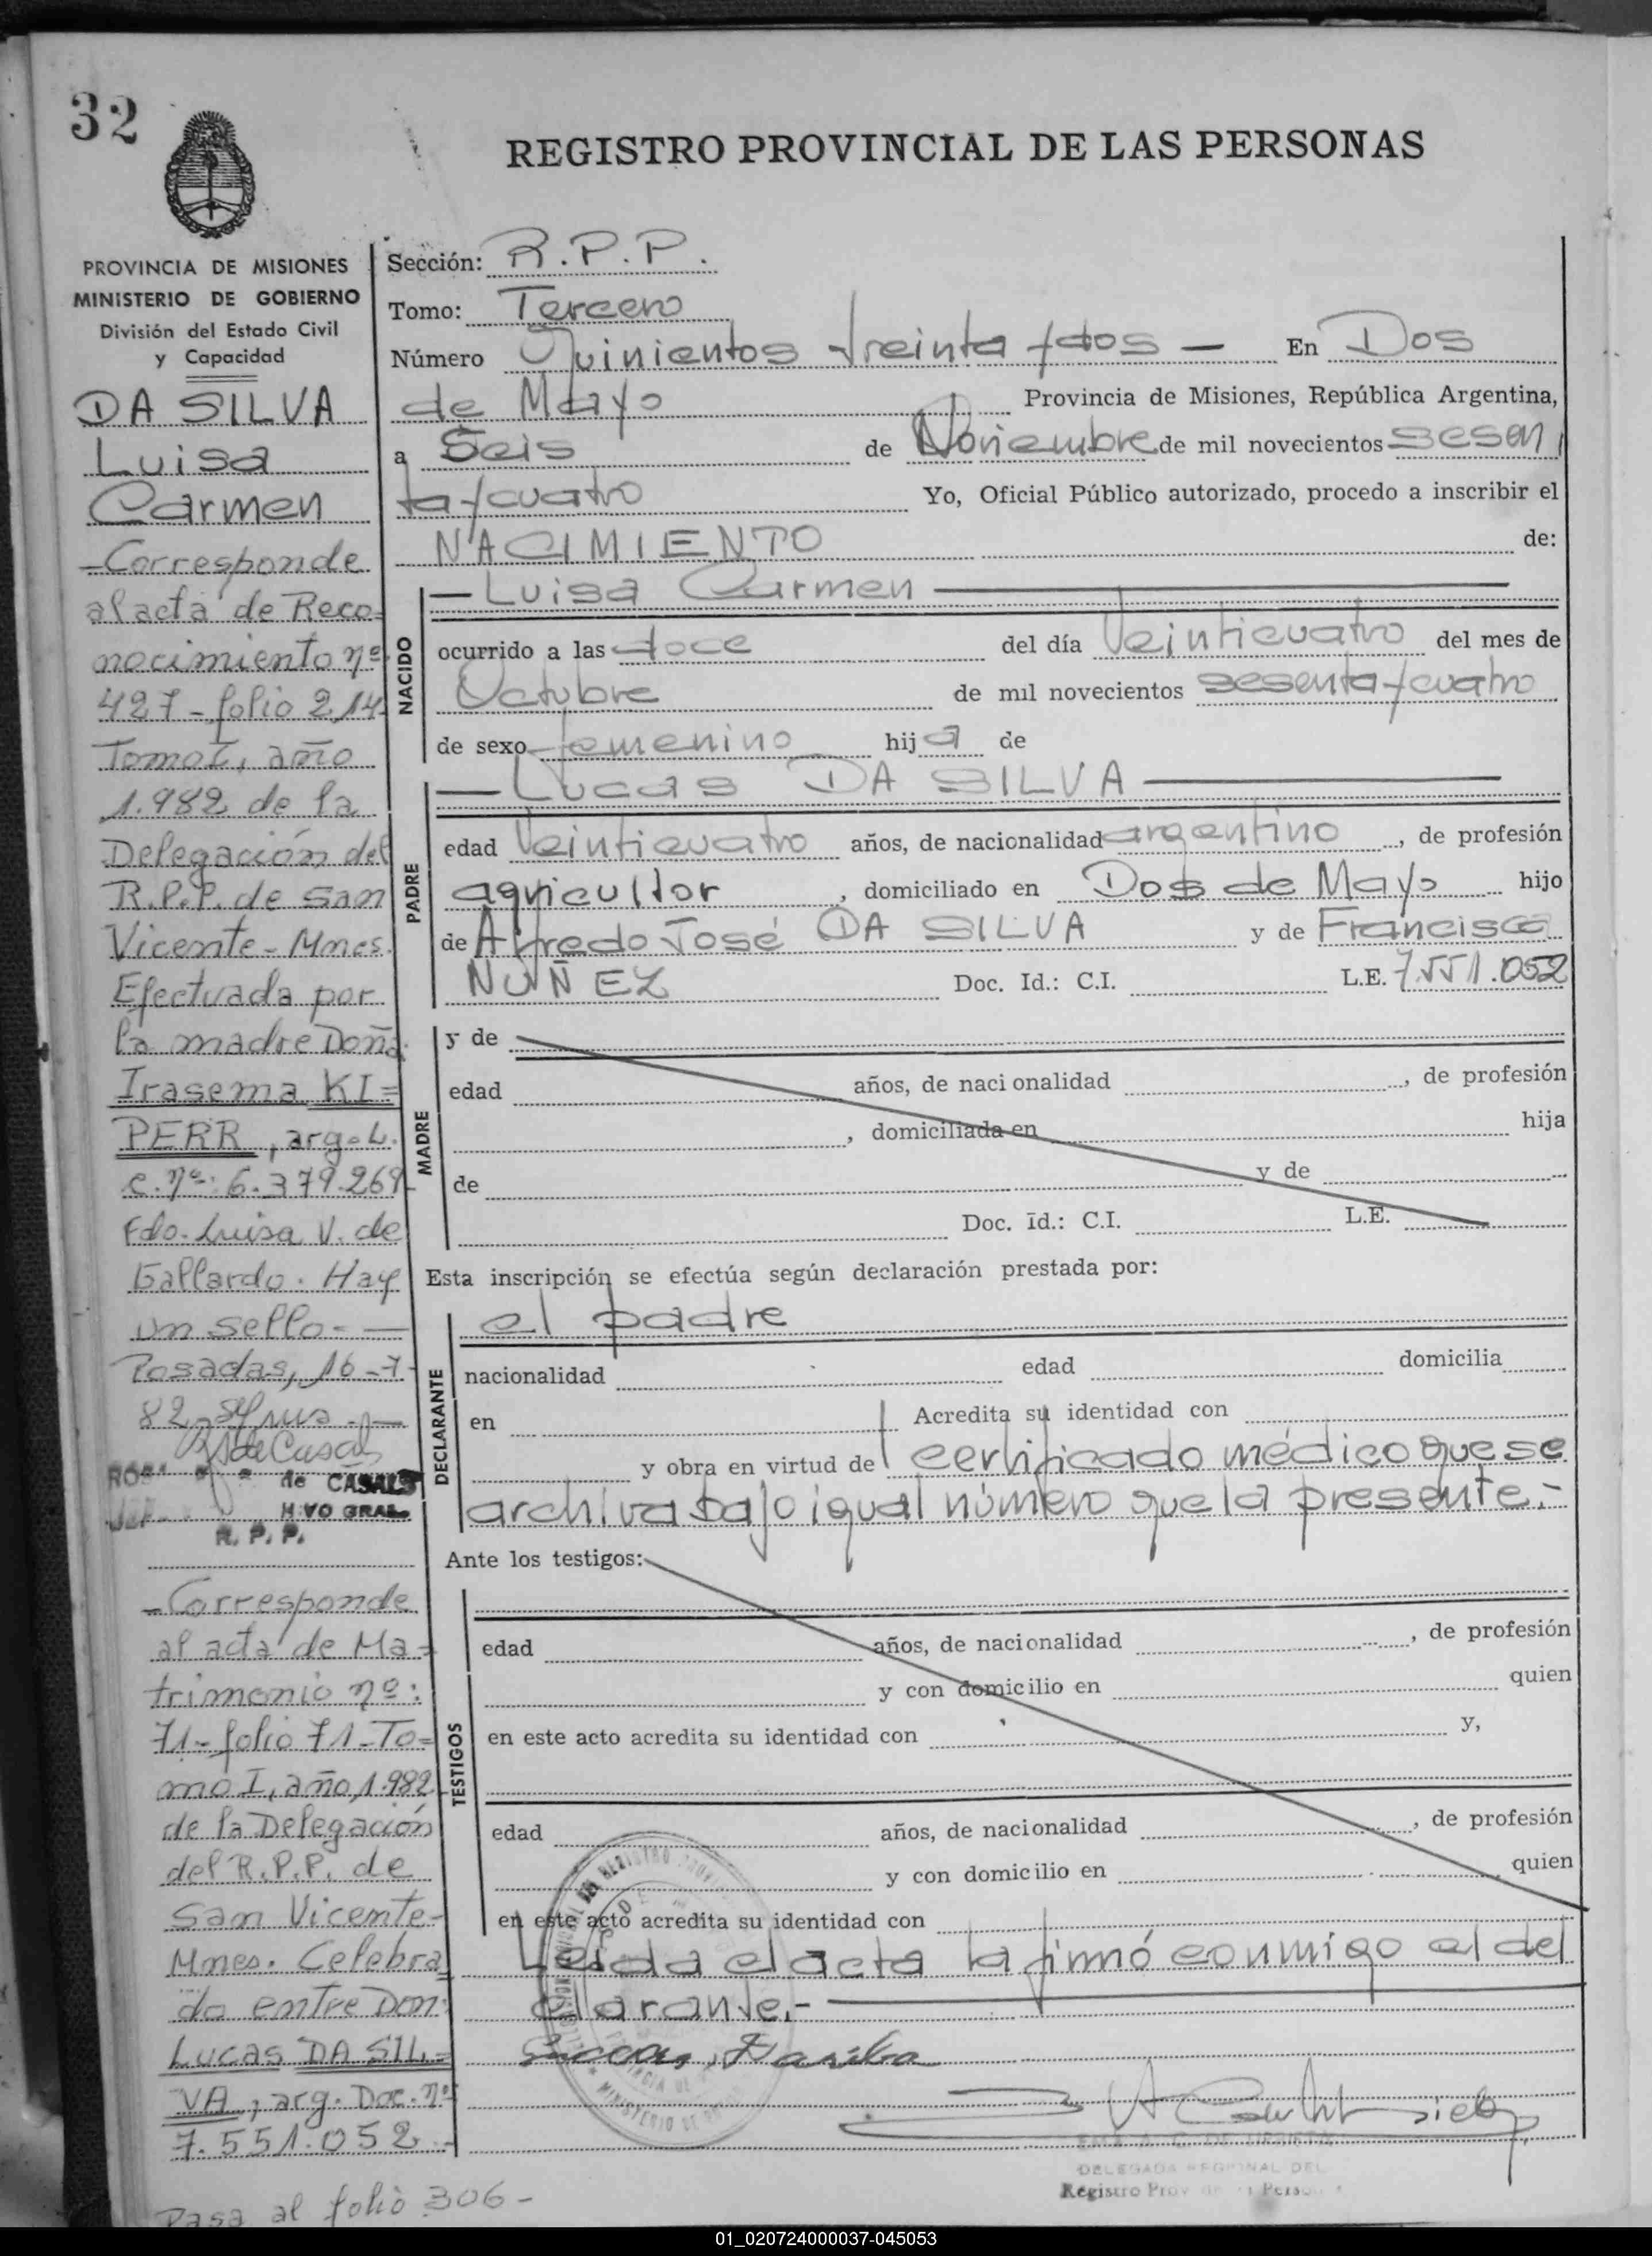 32
REGISTRO PROVINCIAL DE LAS PERSONAS
PROVINCIA DE MISIONES
MINISTERIO DE GOBIERNO
División del Estado Civil
y Capacidad
DA SILVA
Luisa
Carmen
-Corresponde
al acta de Reco=
nocimiento nº
427-folio 214
Tomo I, año
1.982 de la
Delegación del
R.P.P. de San
Vicente-Mnes.
Efectuada por
la madre Doña
Irasema KI=
PERR, arg-L.
c.nº: 6.379.269
Fdo. Luisa V. de
Gallardo. Hay
un sello.-
Posadas, 16-7-
82-
de CASALS
R. P. P.
-Corresponde
al acta de Ma=
trimonio nº:
71-folio 71-To=
mo I, año 1.982
de la Delegación
del R.P.P. de
San Vicente-
Mnes. Celebra=
do entre Don:
Lucas DA SIL=
VA, arg. Doc. nº
7.551.052.-
Pasa al folio 306-
Sección: R.P.P.
Tomo: Tercero
Número Quinientos treinta y dos — En Dos
de Mayo Provincia de Misiones, República Argentina,
a Seis de Noviembre de mil novecientos sesen
ta y cuatro Yo, Oficial Público autorizado, procedo a inscribir el
NACIMIENTO de:
NACIDO
— Luisa Carmen —
ocurrido a las doce del día Veinticuatro del mes de
Octubre de mil novecientos sesenta y cuatro
de sexo femenino hija de
PADRE
— Lucas DA SILVA —
edad Veinticuatro años, de nacionalidad argentino, de profesión
agricultor, domiciliado en Dos de Mayo hijo
de Alfredo José DA SILVA y de Francisca
NUÑEZ Doc. Id.: C.I. L.E. 7.551.052
MADRE
y de
edad años, de nacionalidad , de profesión
, domiciliada en hija
de y de
Doc. Id.: C.I. L.E.
Esta inscripción se efectúa según declaración prestada por:
DECLARANTE
el padre
nacionalidad edad domicilia
en Acredita su identidad con
y obra en virtud de certificado médico que se
archiva bajo igual número que la presente.-
Ante los testigos:
TESTIGOS
edad años, de nacionalidad , de profesión
y con domicilio en quien
en este acto acredita su identidad con y,
edad años, de nacionalidad , de profesión
y con domicilio en quien
en este acto acredita su identidad con
Leida el acta la firmó conmigo el de
clarante.-
DELEGADA REGIONAL DEL